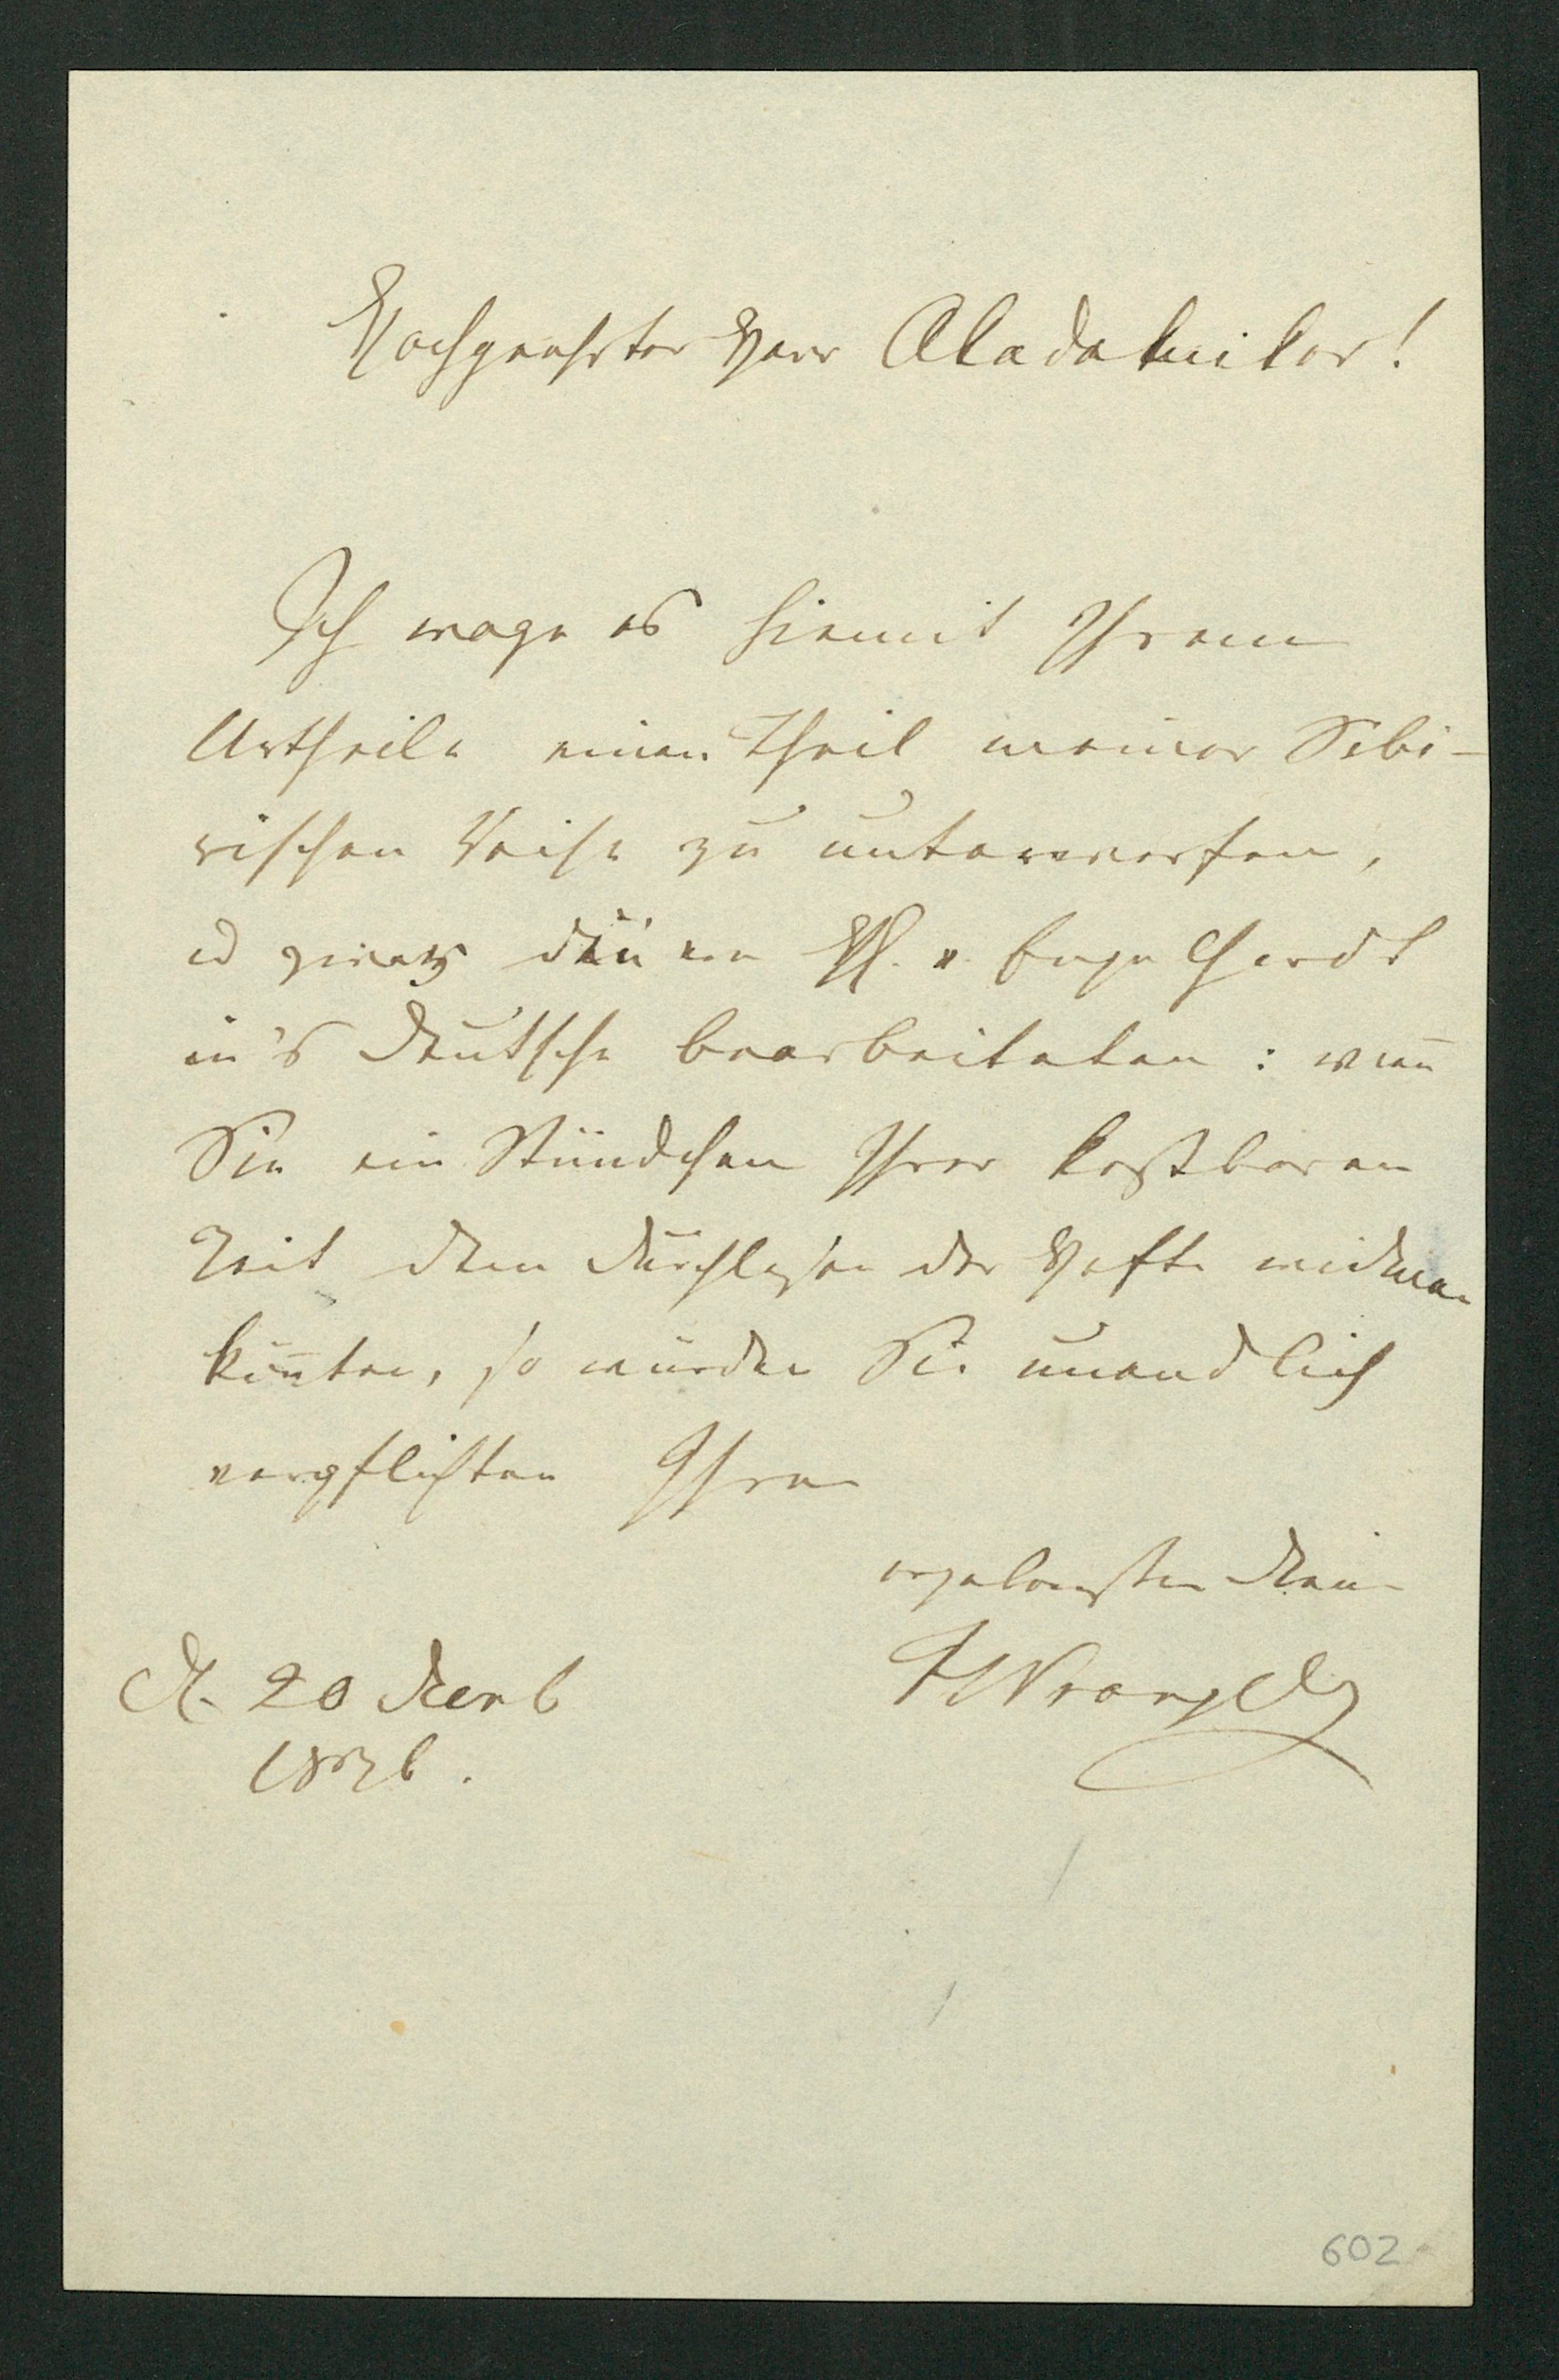 Hochgeehrter Herr Akademiker!
Ich wage es hiemit Ihrem
Urtheile einen Theil meiner Sibi-
rischen Reise zu unterwerfen,
v. Engelhardt
in's Deutsche bearbeiteten: weñ
Sie ein Stündchen Ihrer kostbaren
Zeit dem Durchlesen der Hefte widmen
köñten, so würden Sie unendlich
verpflichten Ihren
ergebensten Diener
20
FWrangell
602